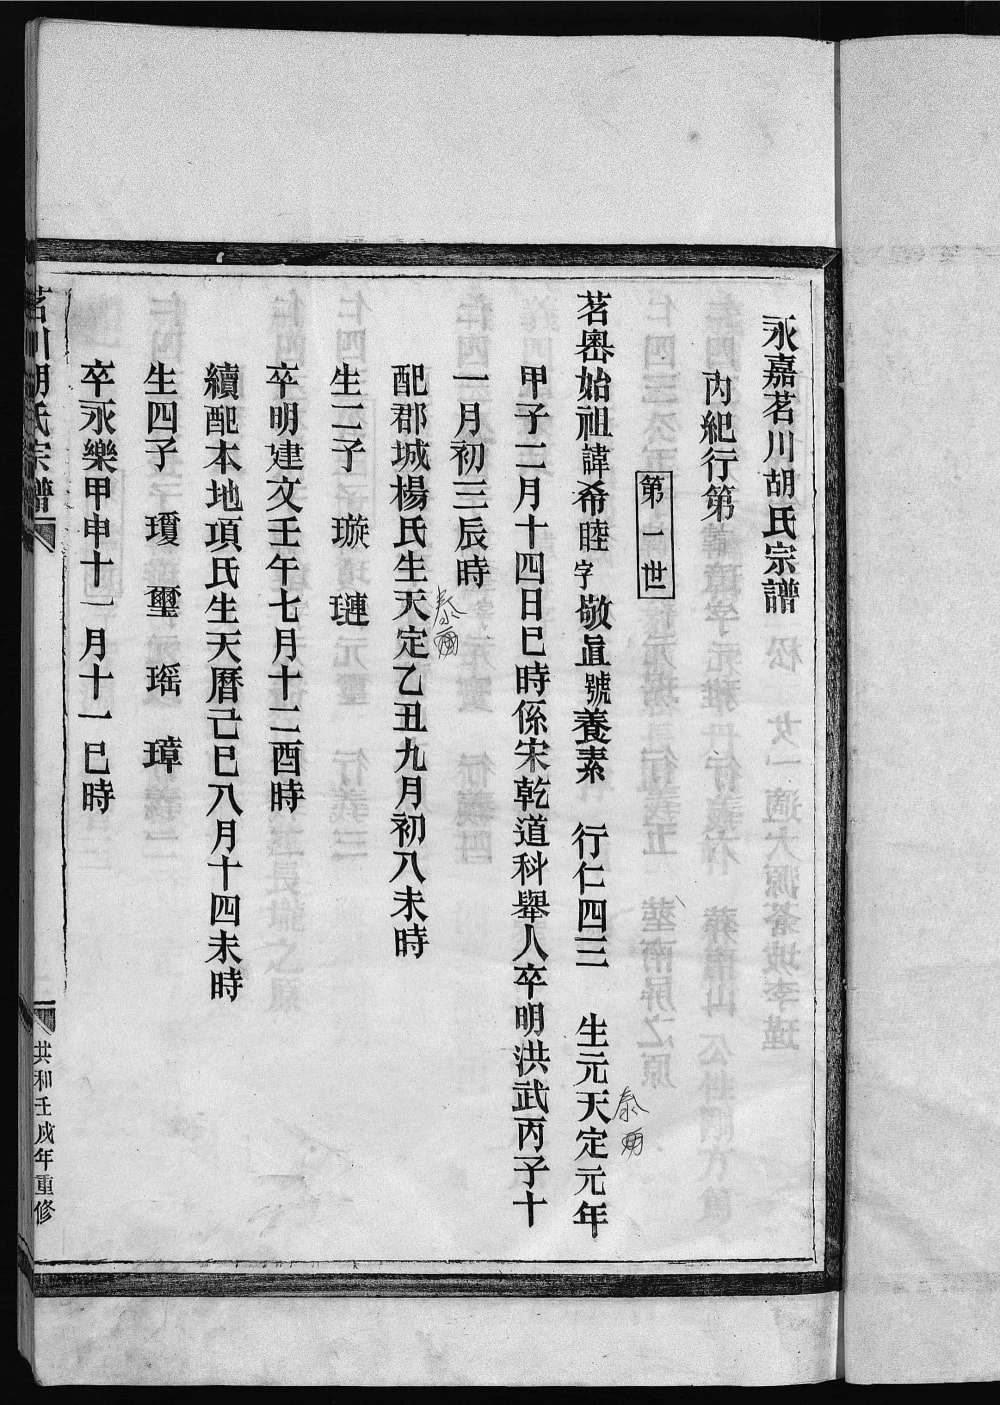 永嘉茗川胡氏宗譜
內紀行第
第一世
茗嶴始祖諱希睦字敬眞號養素 行仁四三 生元天定元年
泰
甲子二月十四日巳時係宋乾道科舉人卒明洪武丙子十
一月初三辰時
配郡城楊氏生天定乙丑九月初八未時
泰
生二子 璇 璉
卒明建文壬午七月十二酉時
續配本地項氏生天曆己巳八月十四未時
生四子 瓊 璽 瑶 璋
卒永樂甲申十一月十一巳時
茗川胡氏宗譜
共和壬戌年重修